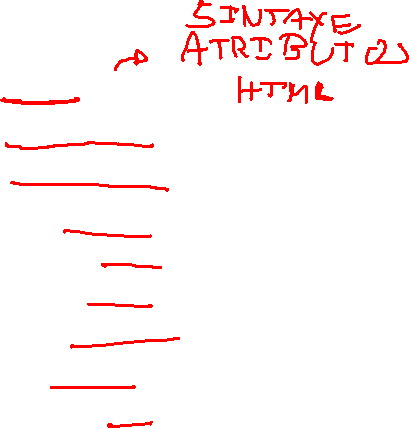 SINTAXE
ATRIBUTOS
HTML